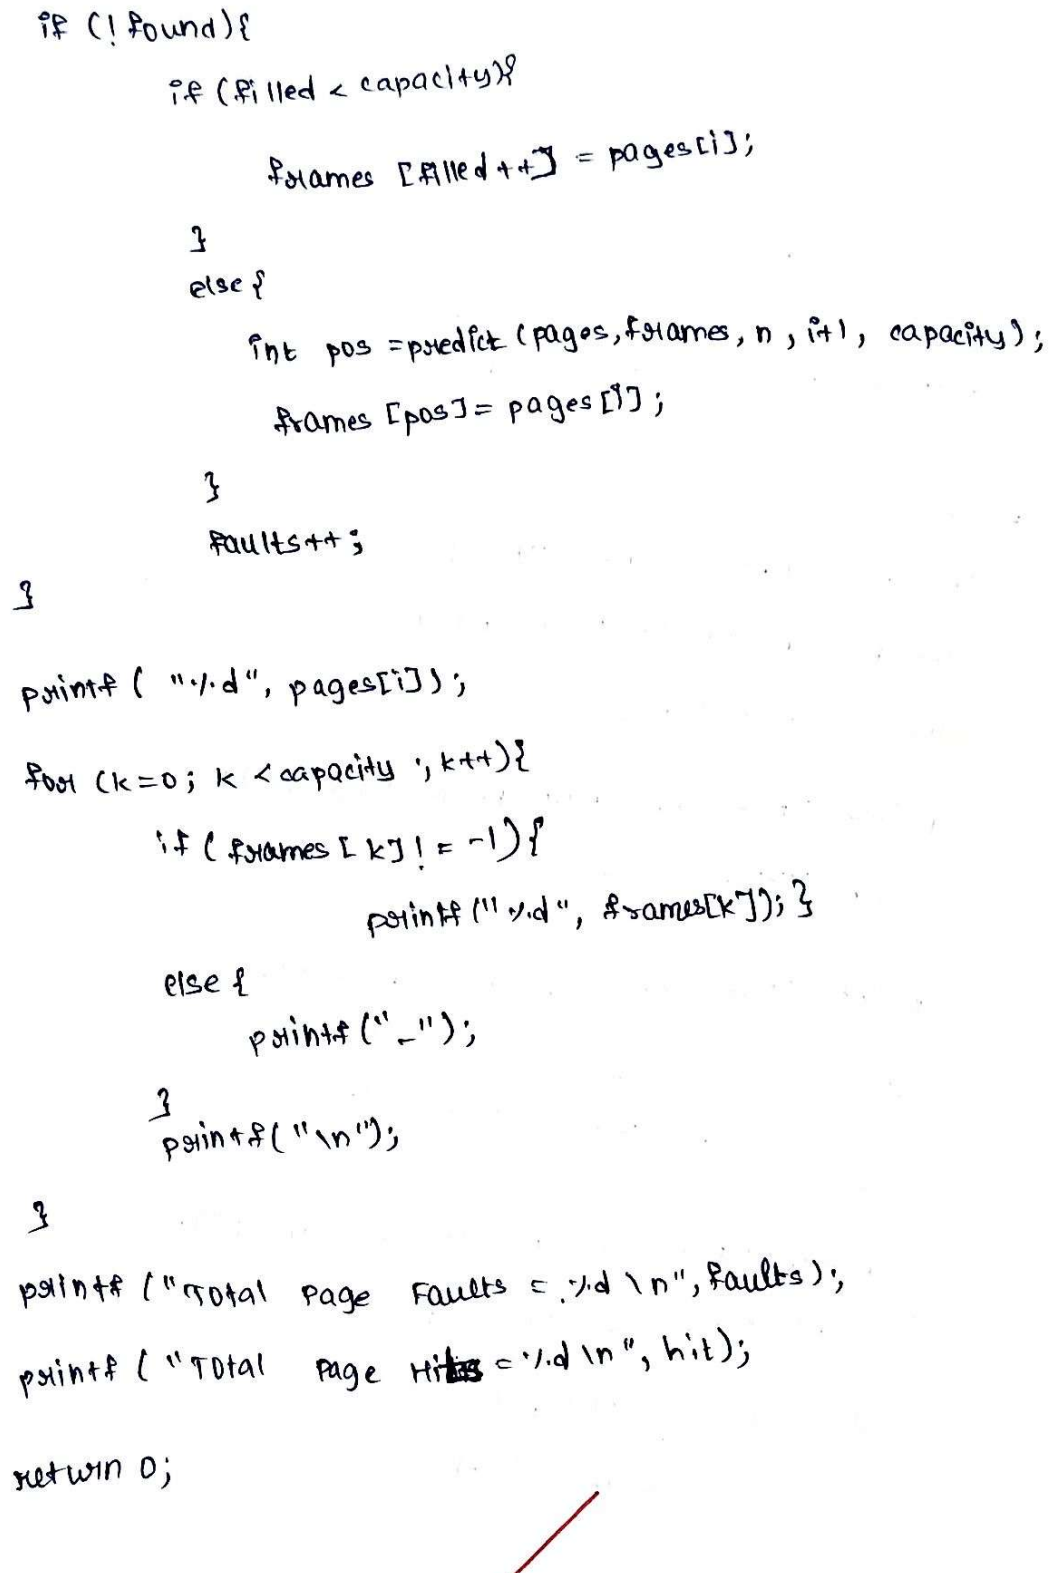 if (! found){
if (filled < capacity){
frames [filled++] = pages[i];
}
else {
int pos = predict (pages, frames, n, i+1, capacity);
frames [pos] = pages [i];
}
faults++;
}
printf ( "%d", pages[i]);
for (k=0; k < capacity ; k++){
if ( frames [ k] ! = -1) {
printf (" %d ", frames[k]); }
else {
printf ("_");
}
printf ( "\n");
}
printf ("Total Page Faults = %d \n", faults);
printf ( "Total Page Hits = %d \n ", hit);
return 0;